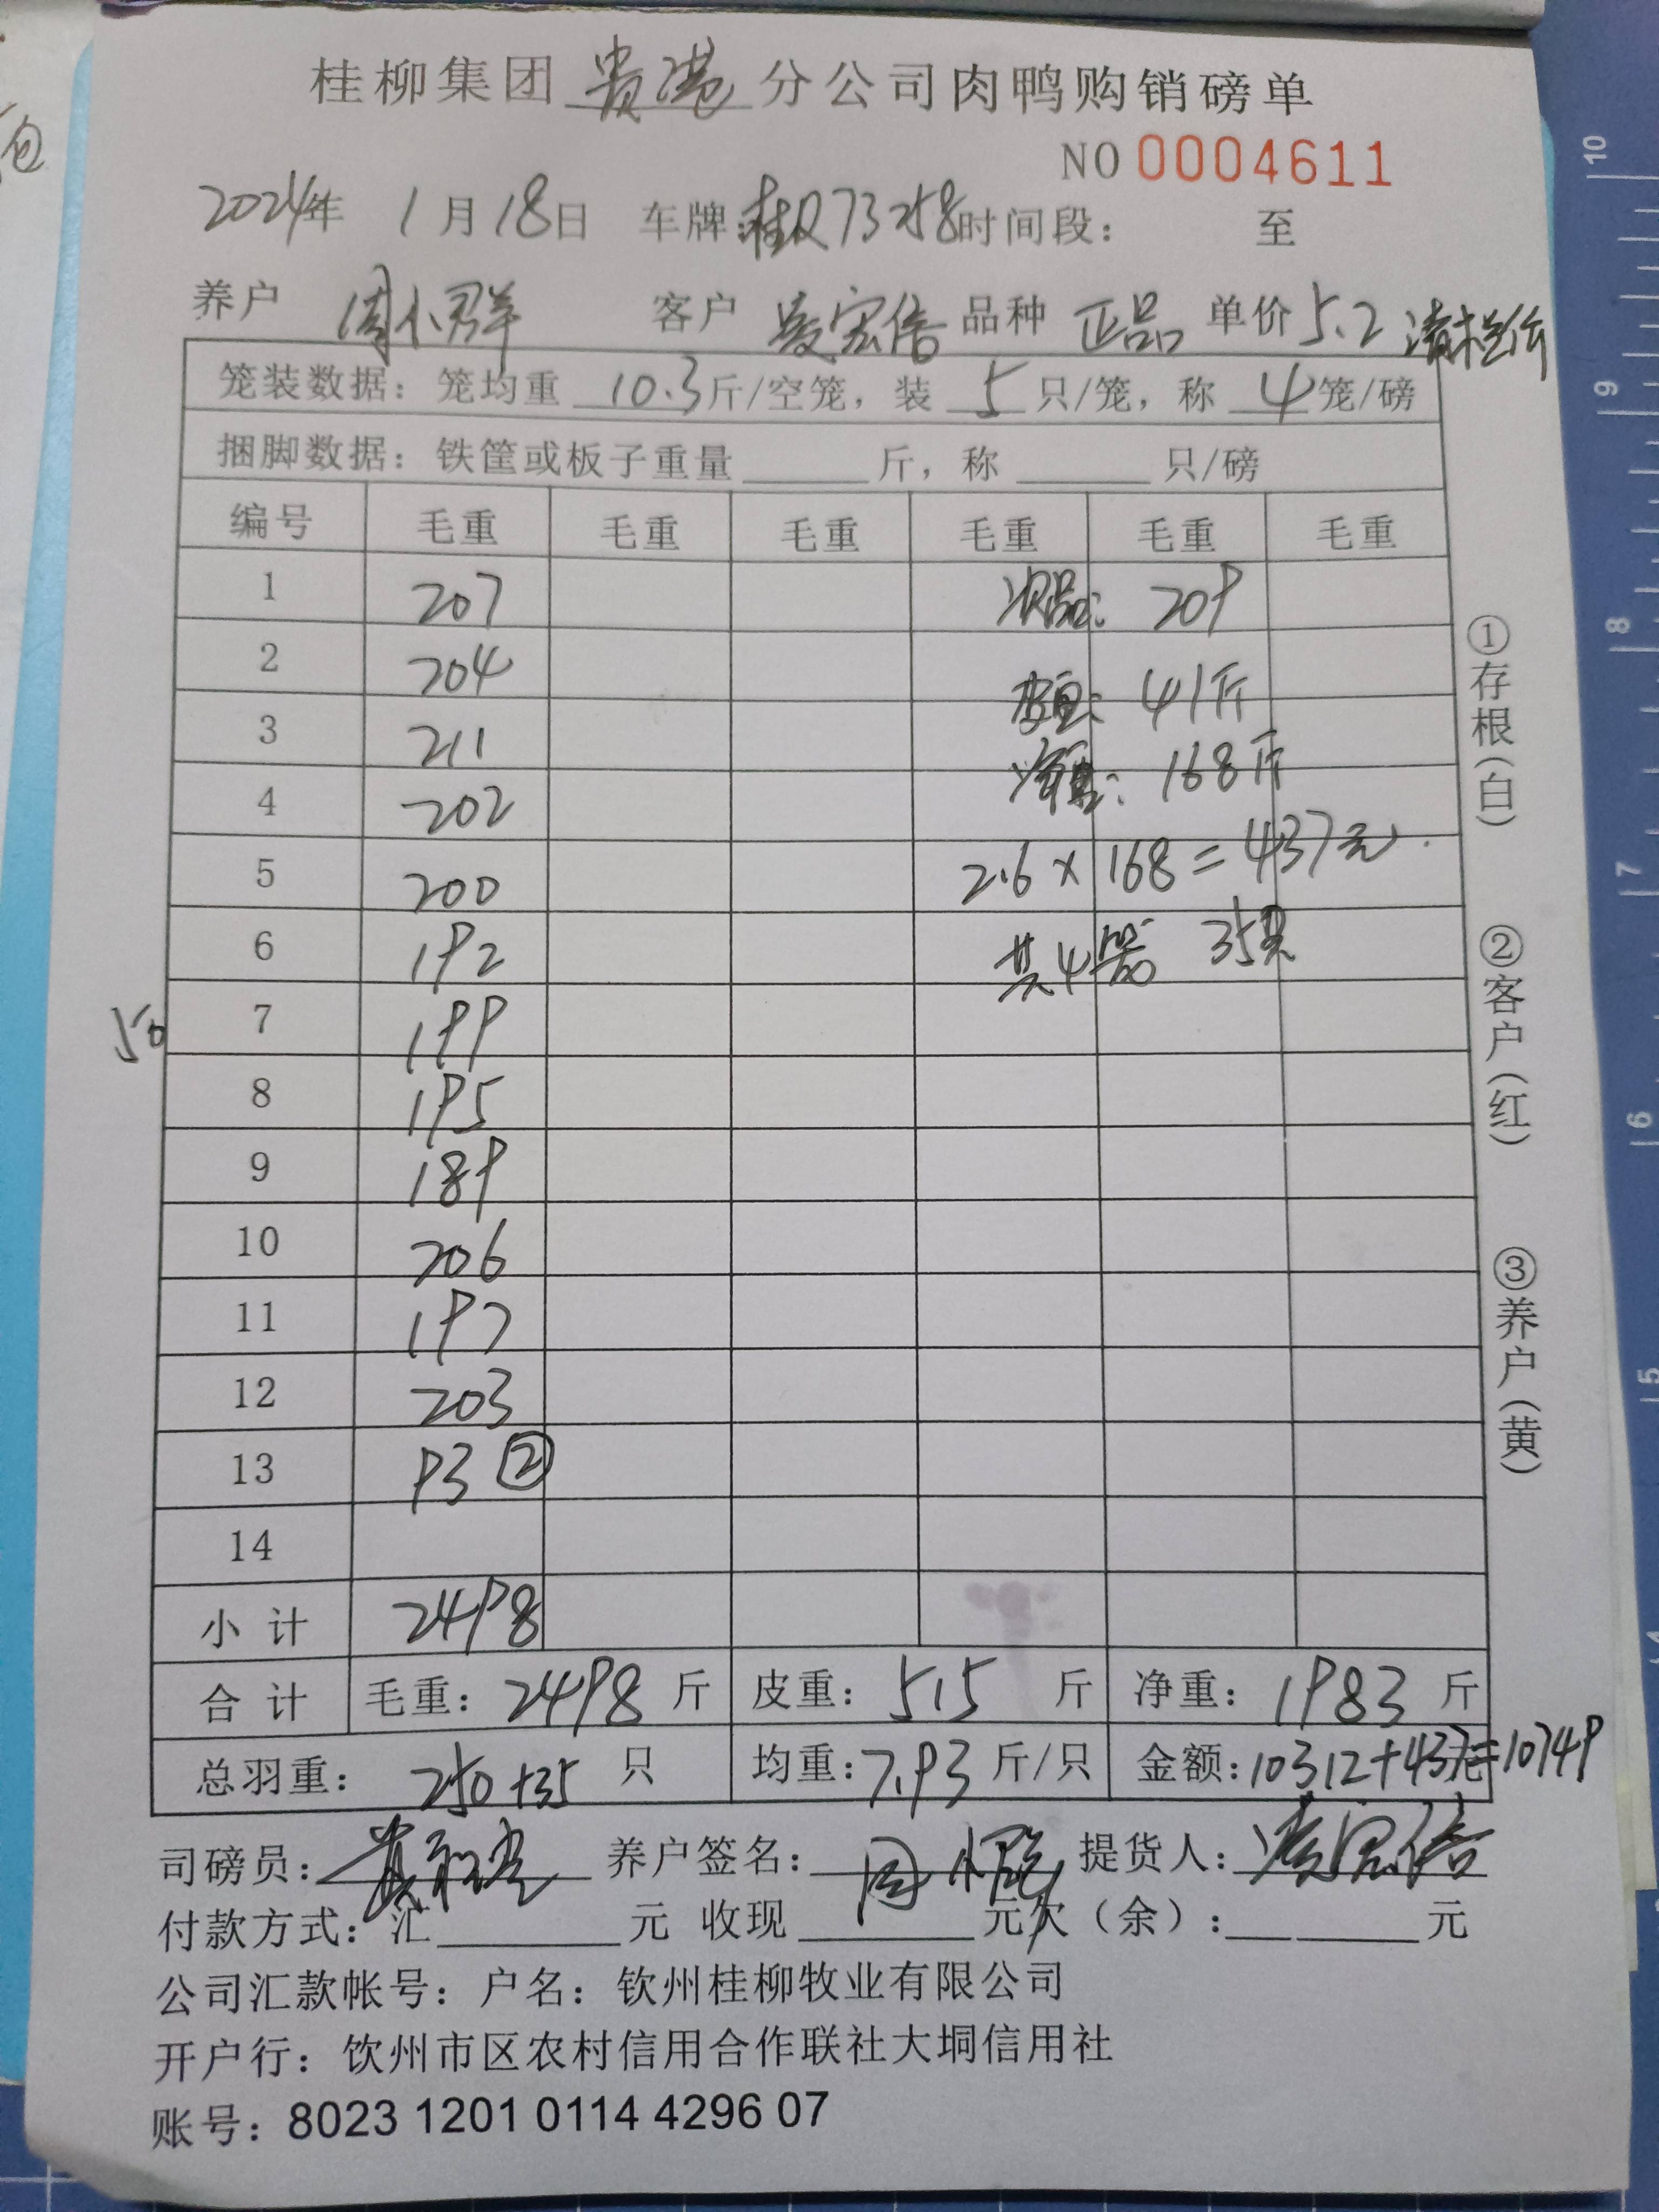 桂柳集团贵港分公司肉鸭购销磅单
NO 0004611
2024年 1月18日 车牌:桂R73258时间段: 至
养户 周小群 客户 凌宏倍 品种 正品 单价5.2 清栏价
笼装数据:笼均重 10.3斤/空笼,装 5 只/笼,称 4笼/磅
捆脚数据:铁筐或板子重量 斤,称 只/磅
编号 毛重 毛重 毛重 毛重 毛重 毛重
1 207 次品: 209
2 204 皮重: 41斤
3 211 净重: 168斤
4 202
5 200 2.6×168=437元
6 192 共4笼 35只
50 7 199
8 195
9 189
10 206
11 197
12 203
13 93 ②
14
小计 2498
合计 毛重:2498斤 皮重:515斤 净重:1983斤
总羽重: 250+35 只 均重:7.93斤/只 金额:10312+437元=10749
司磅员: 养户签名:周小群 提货人:凌宏倍
付款方式:汇 元 收现 元欠(余): 元
公司汇款帐号:户名:钦州桂柳牧业有限公司
开户行:钦州市区农村信用合作联社大垌信用社
账号:8023 1201 0114 4296 07
①存根(白)
②客户(红)
③养户(黄)
10
9
8
7
6
5